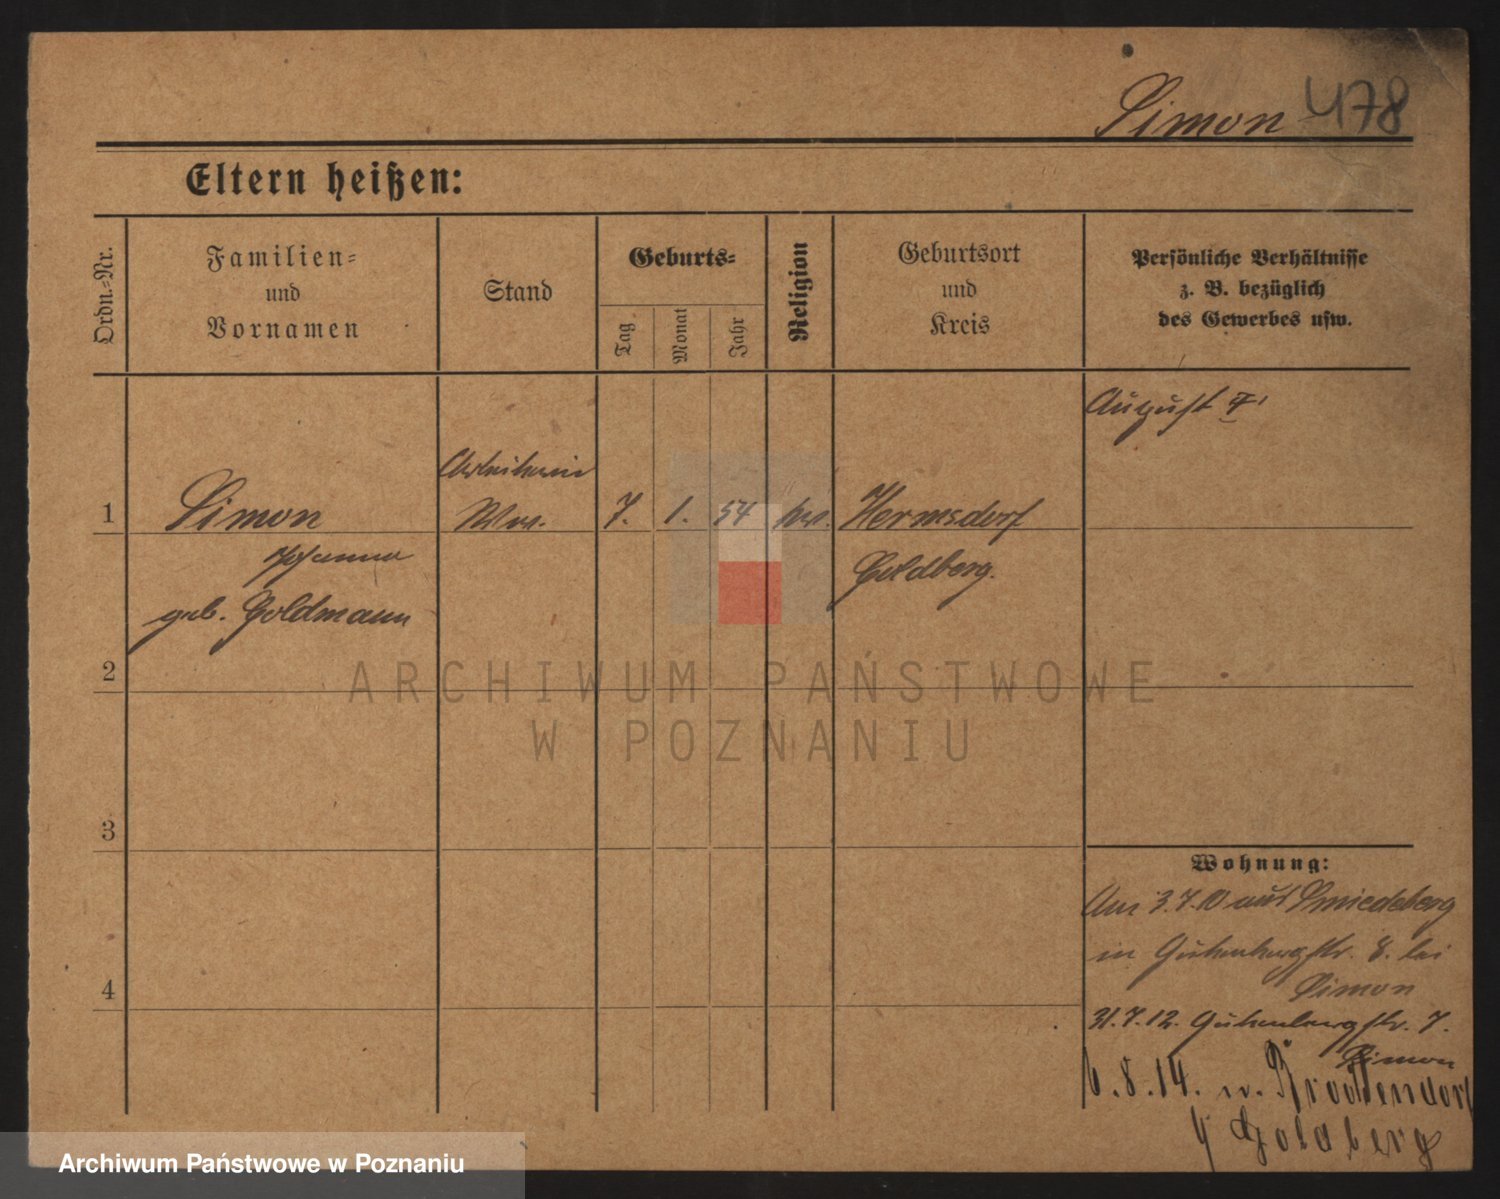 Simon 478
Eltern heißen:
Ordn.-Nr.
Familien-
und
Vornamen
Stand
Geburts-
Tag
Monat
Jahr
Religion
Geburtsort
und
Kreis
Persönliche Verhältnisse
z. B. bezüglich
des Gewerbes usw.
August
1 Simon 7. 1. 54 Hermsdorf
Johanna Goldberg.
geb. Goldmann
2
3
4
Wohnung:
Am 3.7.10 aus Smiedeberg
in Gutenbergstr. 8. bei
Simon
31.7.12. Gutenbergstr. 7.
Simon
6.8.14. n.
Goldberg
ARCHIWUM PAŃSTWOWE
W POZNANIU
Archiwum Państwowe w Poznaniu